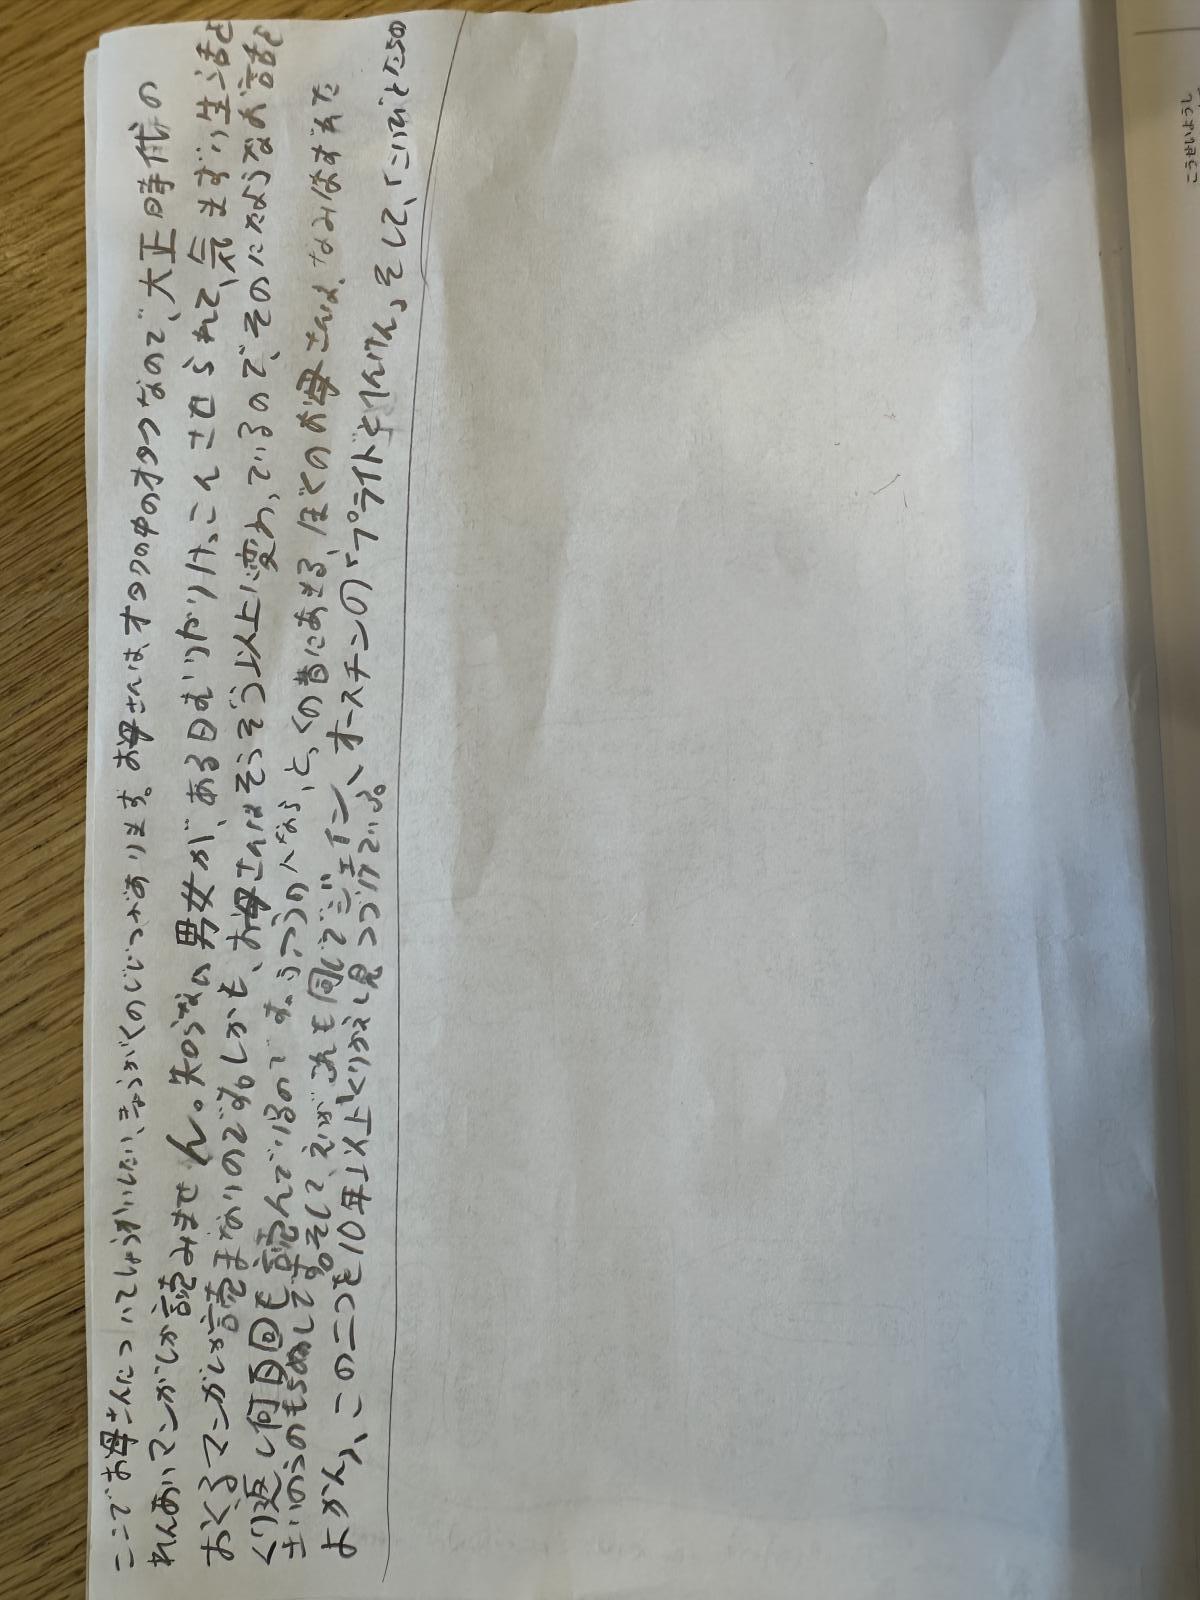 ここでお母さんについてしょうかいしたい、きょうがくのじじつがあります。お母さんはオタクの中のオタクなので、大正時代の
れんあいマンガしか読みません。知らない男女が、ある日むりやりけっこんさせられて、気まずい生活を
おくるマンガしか読まないのです。しかも、お母さんはそうぞう以上に変わっているので、そのにたようなお話を
くり返し何百回も読んでいるのです。ふつうの人なら、とっくの昔にあきる、ぼくのお母さんは、なみはずれた
まいのもちぬしです。そして、えいがも同じでジェイン、オースチンの「プライドとへんけん」そして、「いじとたちの
よかん」、この二つを10年以上くりかえし見つづけている。
こうはいはうし